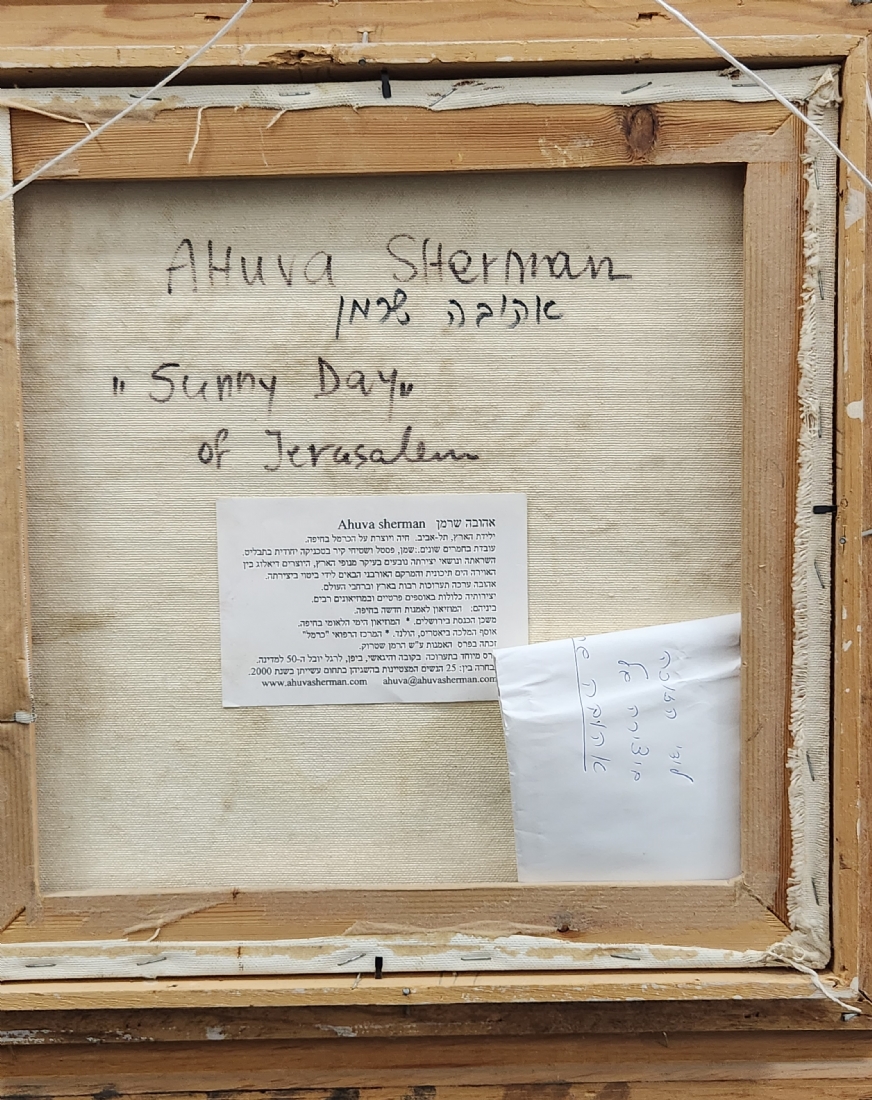 AHuva SHerman
אהובה שרמן
"Sunny Day"
of Jerusalem
אהובה שרמן Ahuva sherman
ילידת הארץ, תל-אביב. חיה ויוצרת על הכרמל בחיפה.
עובדת בחמרים שונים.:שמן, פסטל ושטיחי קיר בטכניקה יחודית בתבליט.
השראתה ונושאי יצירתה נובעים בעיקר מנופי הארץ, היוצרים דיאלוג בין
האוירה הים תיכונית והמרקם האורבני הבאים לידי ביטוי ביצירתה.
אהובה ערכה תערוכות רבות בארץ וברחבי העולם.
יצירותיה כלולות באוספים פרטיים ובמוזיאונים רבים.
ביניהם: המוזיאון לאמנות חדשה בחיפה.
משכן הכנסת בירושלים. * המוזיאון הימי הלאומי בחיפה.
אוסף המלכה ביאטריס, הולנד. * המרכז הרפואי "כרמל"
זכתה בפרס האמנות ע"ש הרמן שטרוק.
רס מיוחד בתערוכה בקובה והיגאשי, ביפן, לרגל יובל ה-50 למדינה.
בחרה בין: 25 הנשים המצטיינות בהשגיהן בתחום עשייתן בשנת 2000.
www.ahuvasherman.com ahuva@ahuvasherman.com